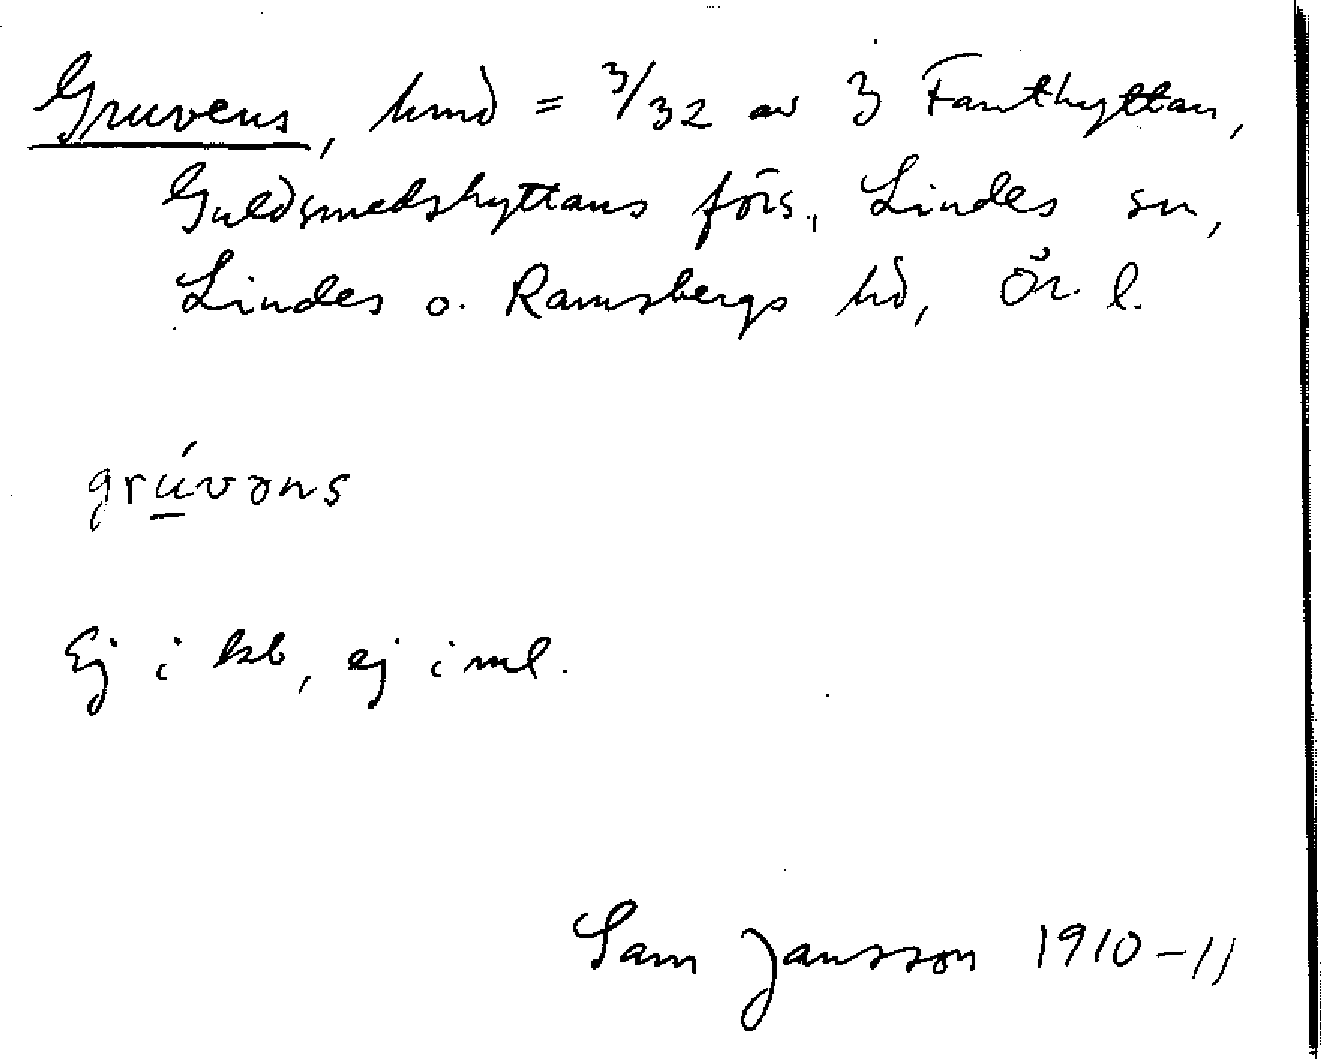 Gruvens, hmd = 3/32 av 3 Fanthyttan,
Guldsmedshyttans förs., Lindes sn,
Lindes o. Ramsbergs hd, Ör. l.
grúvəns
Ej i kb, ej i ml.
Sam Jansson 1910-11